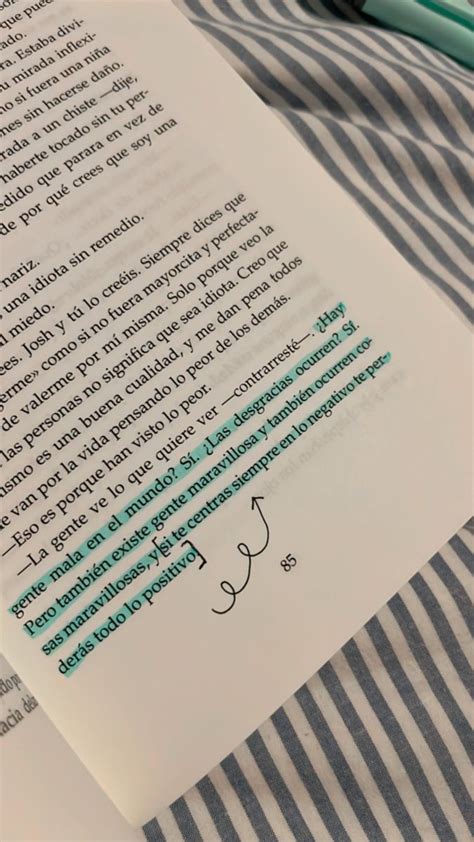 que pued
ado.
ra. Estaba divi-
u mirada inflexi-
no si fuera una niña
nes sin hacerse daño.
rada a un chiste —dije,
haberte tocado sin tu per-
edido que parara en vez de
de por qué crees que soy una
nariz.
una idiota sin remedio.
l miedo.
ees. Josh y tú lo creéis. Siempre dices que
erme» como si no fuera mayorcita y perfecta-
de valerme por mí misma. Solo porque veo la
las personas no significa que sea idiota. Creo que
ismo es una buena cualidad, y me dan pena todos
e van por la vida pensando lo peor de los demás.
—Eso es porque han visto lo peor.
—La gente ve lo que quiere ver —contrarresté—. ¿Hay
gente mala en el mundo? Sí. ¿Las desgracias ocurren? Sí.
Pero también existe gente maravillosa y también ocurren co-
sas maravillosas, y si te centras siempre en lo negativo te per-
derás todo lo positivo.
85